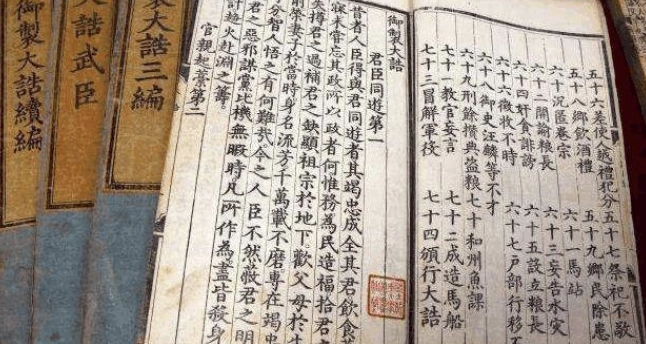 五十六差使人越禮犯分 五十七祭祀不敬
五十八鄉飲酒禮 五十九鄉民除患
六十沉匿卷宗 六十一馬站
六十二開諭糧長 六十三妄告水災
六十四奸貪誹謗 六十五設立糧長
六十六徵收不時 六十七戶部行移不
六十八御史汪麟等不才
六十九刑餘攢典盜糧 七十和州魚課
七十一教官妄言 七十二成造馬船
七十三冒解軍役 七十四頒行大誥
御製大誥
君臣同遊第一
昔者人臣得與君同遊者其竭忠成全其君飲食
寐未嘗忘其政所以政者何惟務為民造福拾君之
失撙君之過補君之缺顯祖宗於地下歡父母於
前榮妻子於當時身名流芳千萬載不磨專在竭忠
分智人悟之有何難哉今之人臣不然蔽君之明
君之惡邪謀黨比機無暇時凡所作為盡皆殺身
計趨火赴淵之籌
官親起藁第二
製大誥三編
大誥武臣
御製大誥續編